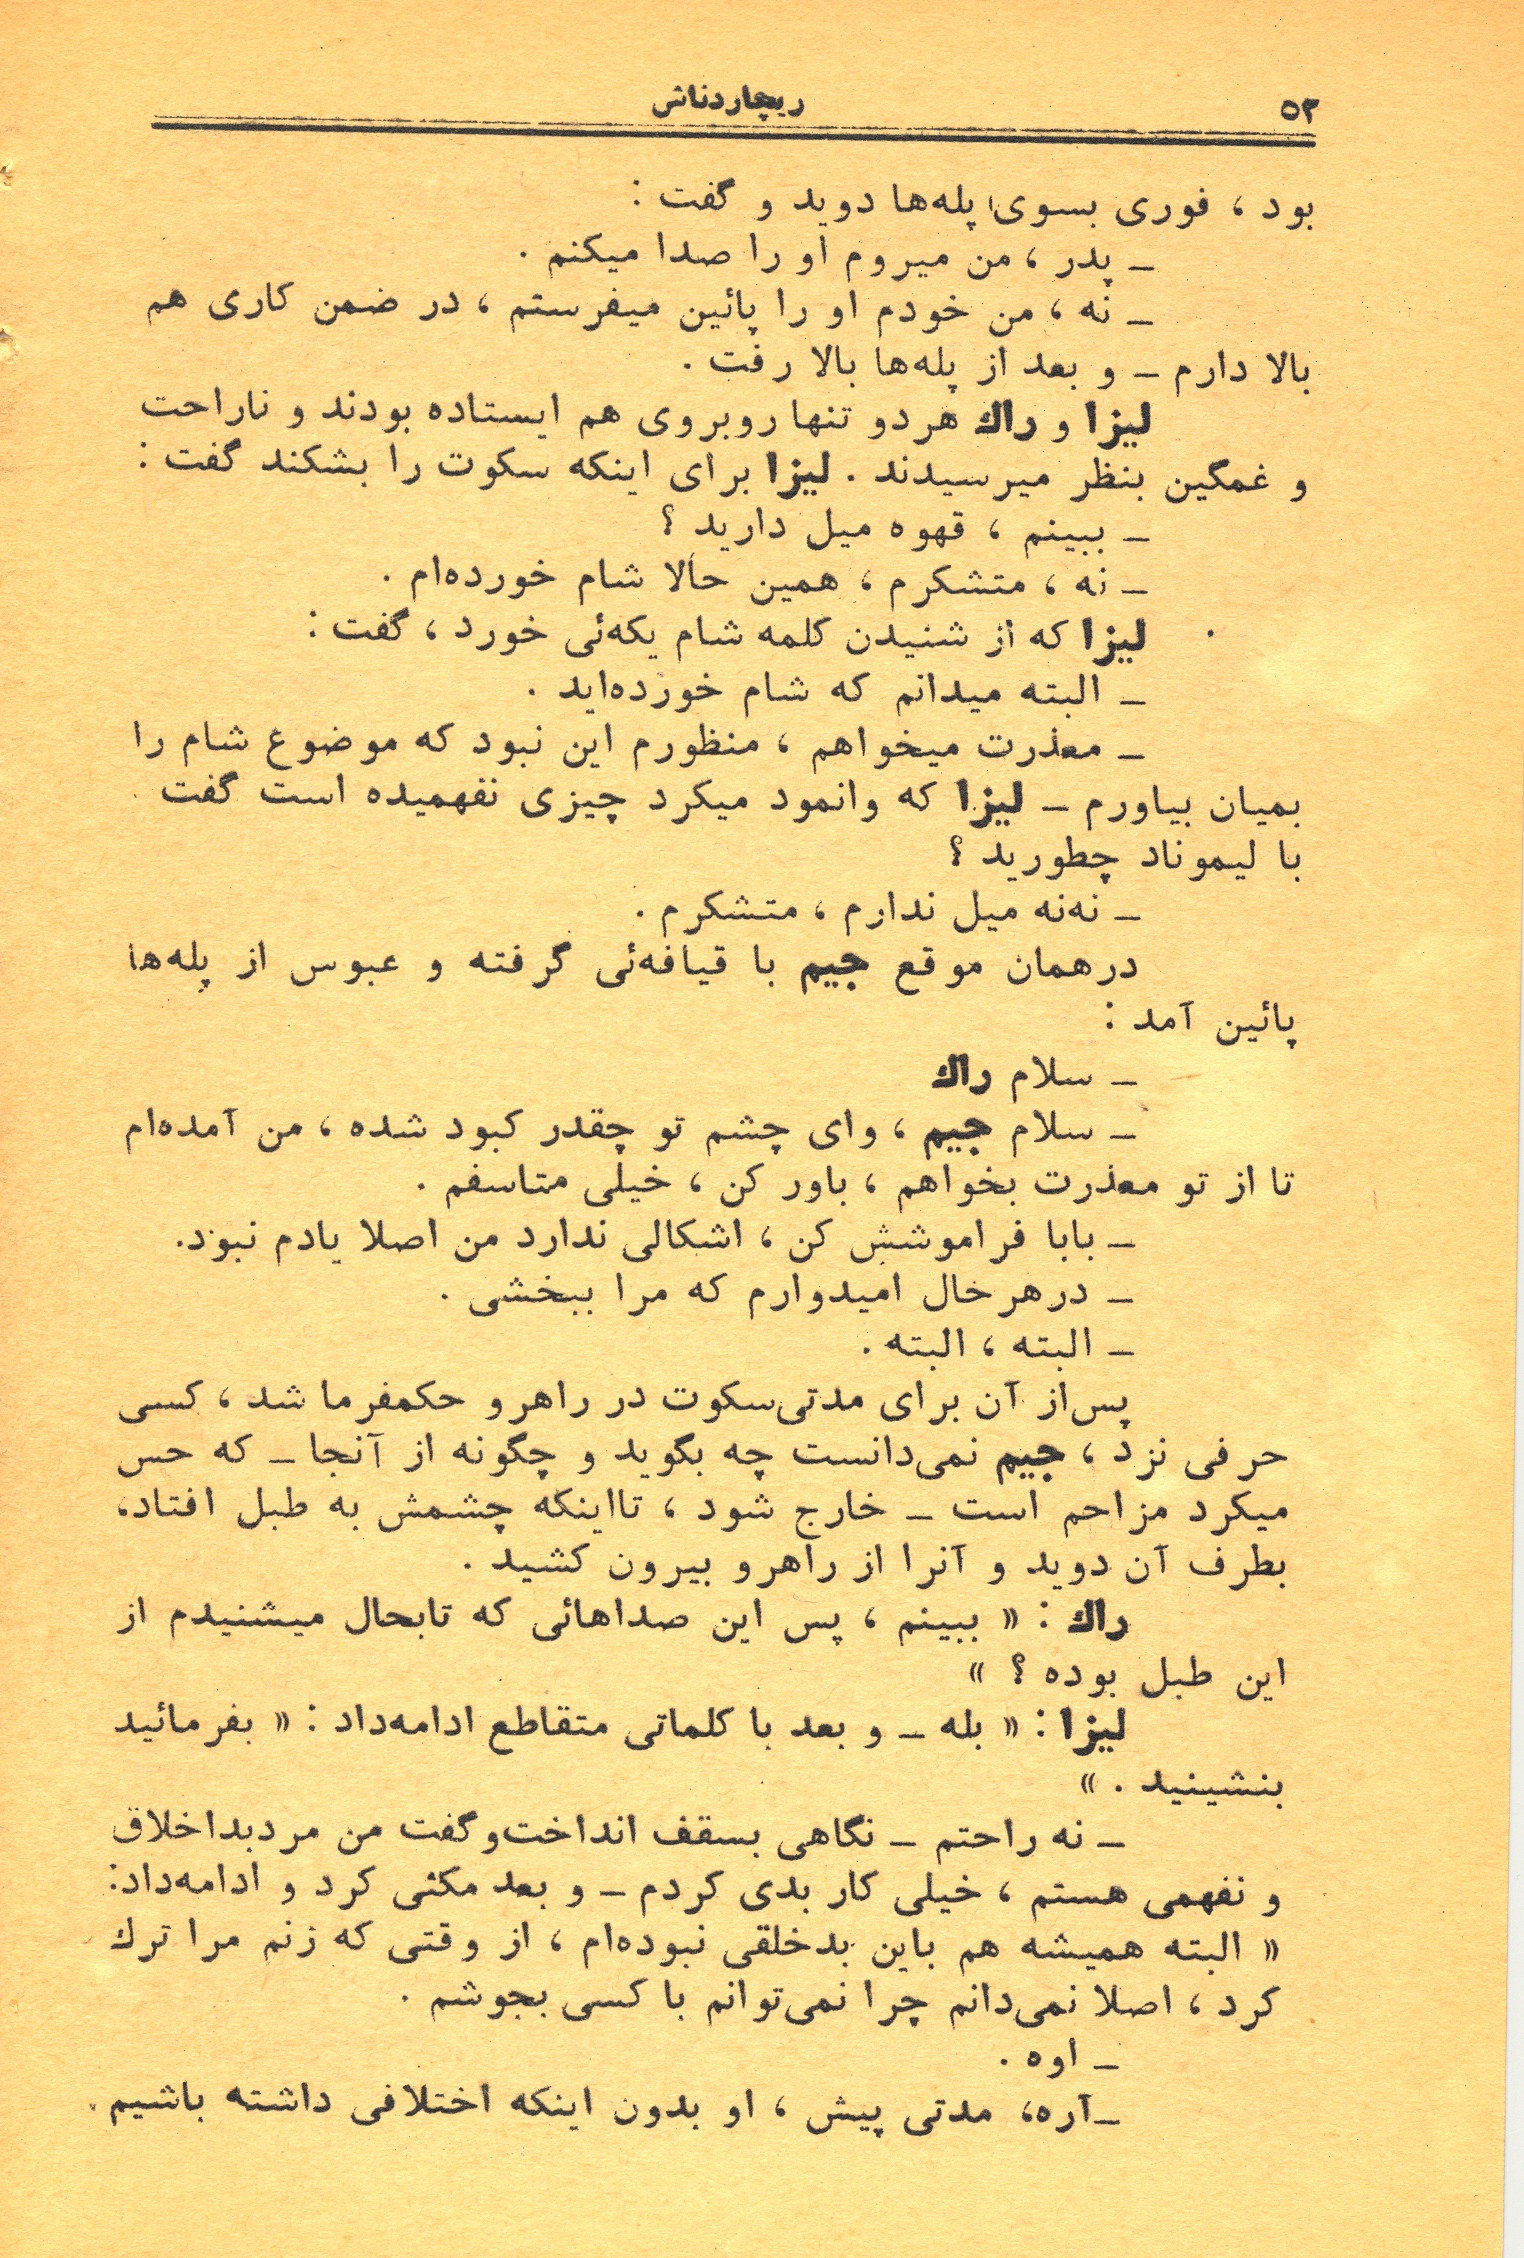 ۵۳
ریچاردناش
بود ، فوری بسوی پله‌ها دوید و گفت :
ـ پدر ، من میروم او را صدا میکنم .
ـ نه ، من خودم او را پائین میفرستم ، در ضمن کاری هم
بالا دارم ـ و بعد از پله‌ها بالا رفت .
لیزا و راك هردو تنها روبروی هم ایستاده بودند و ناراحت
و غمگین بنظر میرسیدند . لیزا برای اینکه سکوت را بشکند گفت :
ـ ببینم ، قهوه میل دارید ؟
ـ نه ، متشکرم ، همین حالا شام خورده‌ام .
لیزا که از شنیدن کلمه شام یکه‌ئی خورد ، گفت :
ـ البته میدانم که شام خورده‌اید .
ـ معذرت میخواهم ، منظورم این نبود که موضوع شام را
بمیان بیاورم ـ لیزا که وانمود میکرد چیزی نفهمیده است گفت
با لیموناد چطورید ؟
ـ نه‌نه میل ندارم ، متشکرم .
درهمان موقع جیم با قیافه‌ئی گرفته و عبوس از پله‌ها
پائین آمد :
ـ سلام راك
ـ سلام جیم ، وای چشم تو چقدر کبود شده ، من آمده‌ام
تا از تو معذرت بخواهم ، باور کن ، خیلی متاسفم .
ـ بابا فراموشش کن ، اشکالی ندارد من اصلا یادم نبود.
ـ درهرحال امیدوارم که مرا ببخشی .
ـ البته ، البته .
پس‌از آن برای مدتی‌سکوت در راهرو حکمفرما شد ، کسی
حرفی نزد ، جیم نمی‌دانست چه بگوید و چگونه از آنجا ـ که حس
میکرد مزاحم است ـ خارج شود ، تااینکه چشمش به طبل افتاد.
بطرف آن دوید و آنرا از راهرو بیرون کشید .
راك : « ببینم ، پس این صداهائی که تابحال میشنیدم از
این طبل بوده ؟ »
لیزا : « بله ـ و بعد با کلماتی متقاطع ادامه‌داد : « بفرمائید
بنشینید . »
ـ نه راحتم ـ نگاهی بسقف انداخت‌و گفت من مردبداخلاق
و نفهمی هستم ، خیلی کار بدی کردم ـ و بعد مکثی کرد و ادامه‌داد:
« البته همیشه هم باین بدخلقی نبوده‌ام ، از وقتی که زنم مرا ترك
کرد ، اصلا نمی‌دانم چرا نمی‌توانم با کسی بجوشم .
ـ اوه .
ـآره، مدتی پیش ، او بدون اینکه اختلافی داشته باشیم